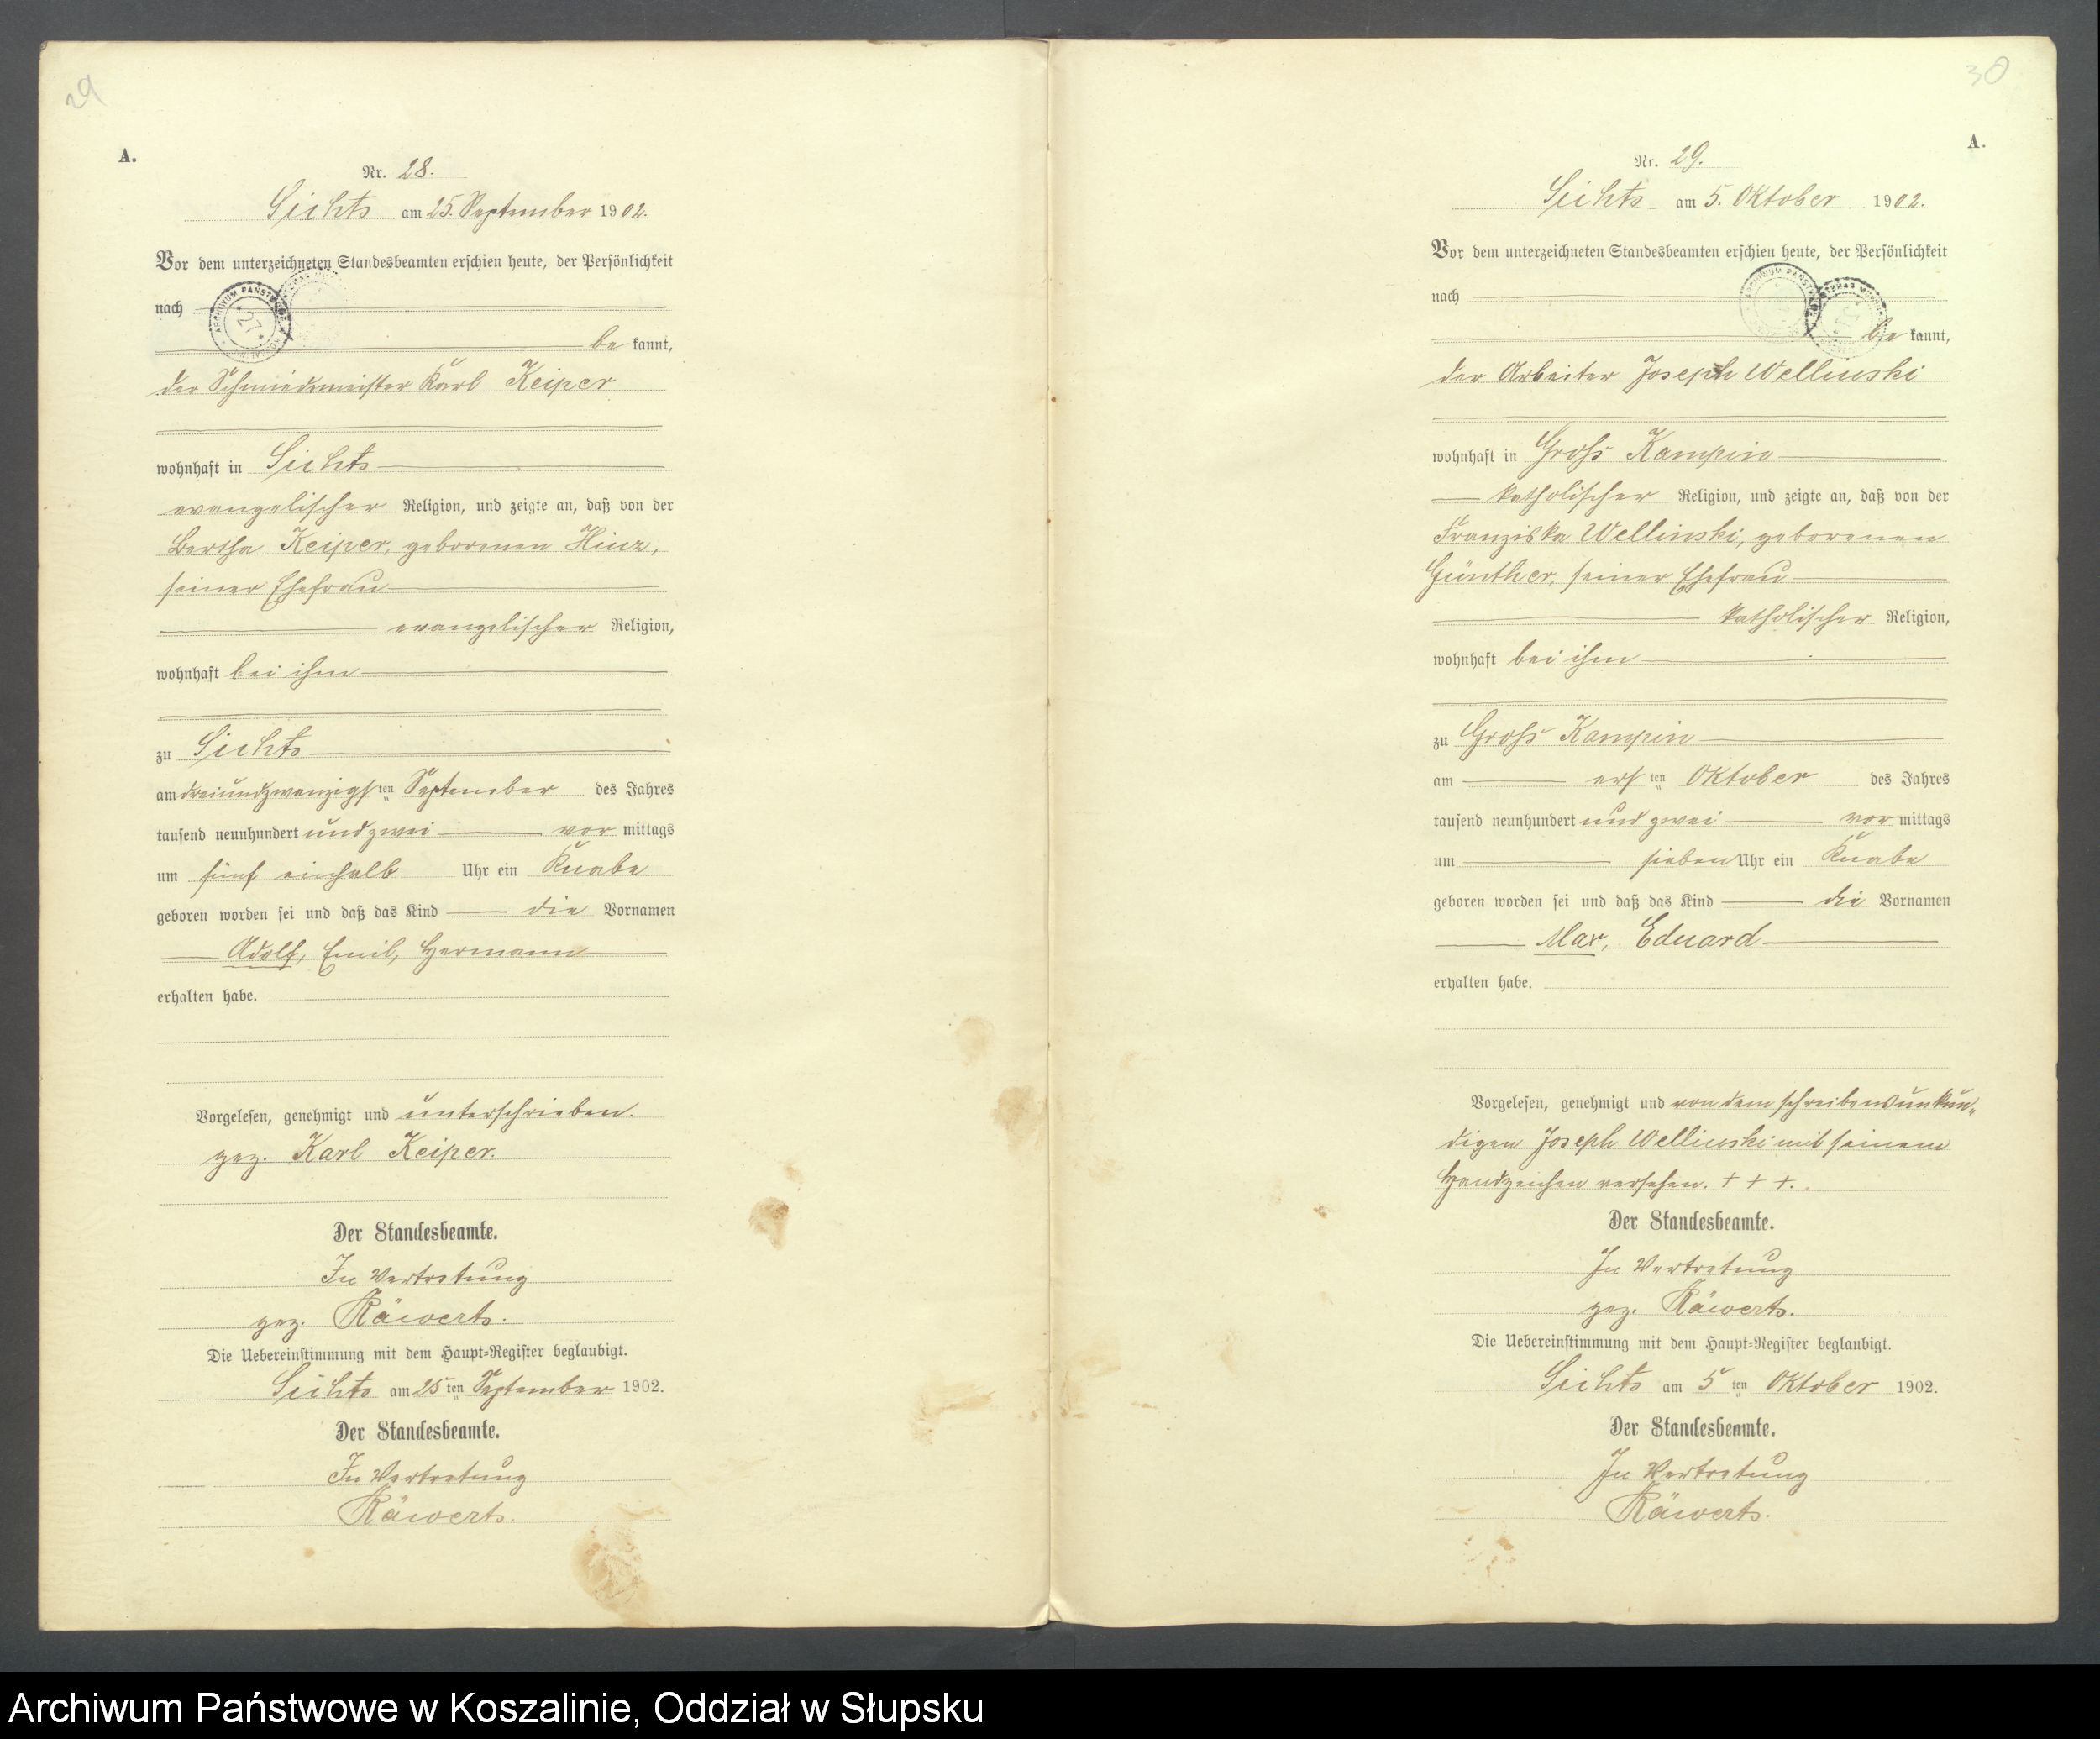 29
A.
Nr. 28.
Sichts am 25. September 1902.
Vor dem unterzeichneten Standesbeamten erschien heute, der Persönlichkeit
nach
be kannt,
der Schmiedemeister Karl Keiper
wohnhaft in Sichts
evangelischer Religion, und zeigte an, daß von der
Bertha Keiper, geborenen Hinz,
seiner Ehefrau
evangelischer Religion,
wohnhaft bei ihm
zu Sichts
am dreiundzwanzigsten September des Jahres
tausend neunhundert und zwei vor mittags
um fünf einhalb Uhr ein Knabe
geboren worden sei und daß das Kind die Vornamen
Adolf, Emil, Hermann
erhalten habe.
Vorgelesen, genehmigt und unterschrieben.
gez. Karl Keiper.
Der Standesbeamte.
In Vertretung
gez. Räwerts.
Die Uebereinstimmung mit dem Haupt-Register beglaubigt.
Sichts am 25ten September 1902.
Der Standesbeamte.
In Vertretung
Räwerts.
30
A.
Nr. 29.
Sichts am 5. Oktober 1902.
Vor dem unterzeichneten Standesbeamten erschien heute, der Persönlichkeit
nach
be kannt,
der Arbeiter Joseph Wellinski
wohnhaft in Gross Kampin
katholischer Religion, und zeigte an, daß von der
Franziska Wellinski, geborenen
Günther, seiner Ehefrau
katholischer Religion,
wohnhaft bei ihm
zu Gross Kampin
am ersten Oktober des Jahres
tausend neunhundert und zwei vor mittags
um sieben Uhr ein Knabe
geboren worden sei und daß das Kind die Vornamen
Max, Eduard
erhalten habe.
Vorgelesen, genehmigt und von dem schreibensunkun-
digen Joseph Wellinski mit seinem
Handzeichen versehen. + + +.
Der Standesbeamte.
In Vertretung
gez. Räwerts.
Die Uebereinstimmung mit dem Haupt-Register beglaubigt.
Sichts am 5ten Oktober 1902.
Der Standesbeamte.
In Vertretung
Räwerts.
Archiwum Państwowe w Koszalinie, Oddział w Słupsku